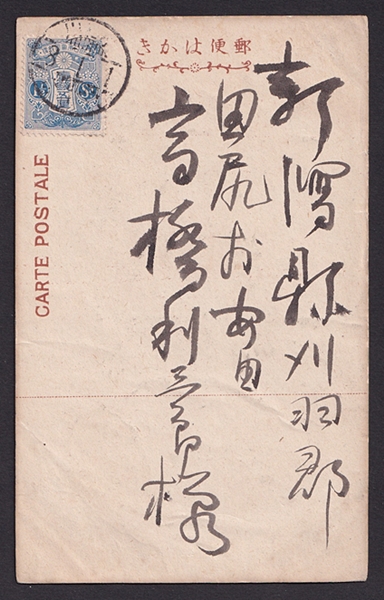 きかは便郵
CARTE POSTALE
新潟縣刈羽郡
田尻村安田
高橋利三郎様